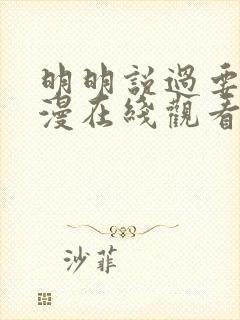 明明說過要
漫在綫觀看
沙菲